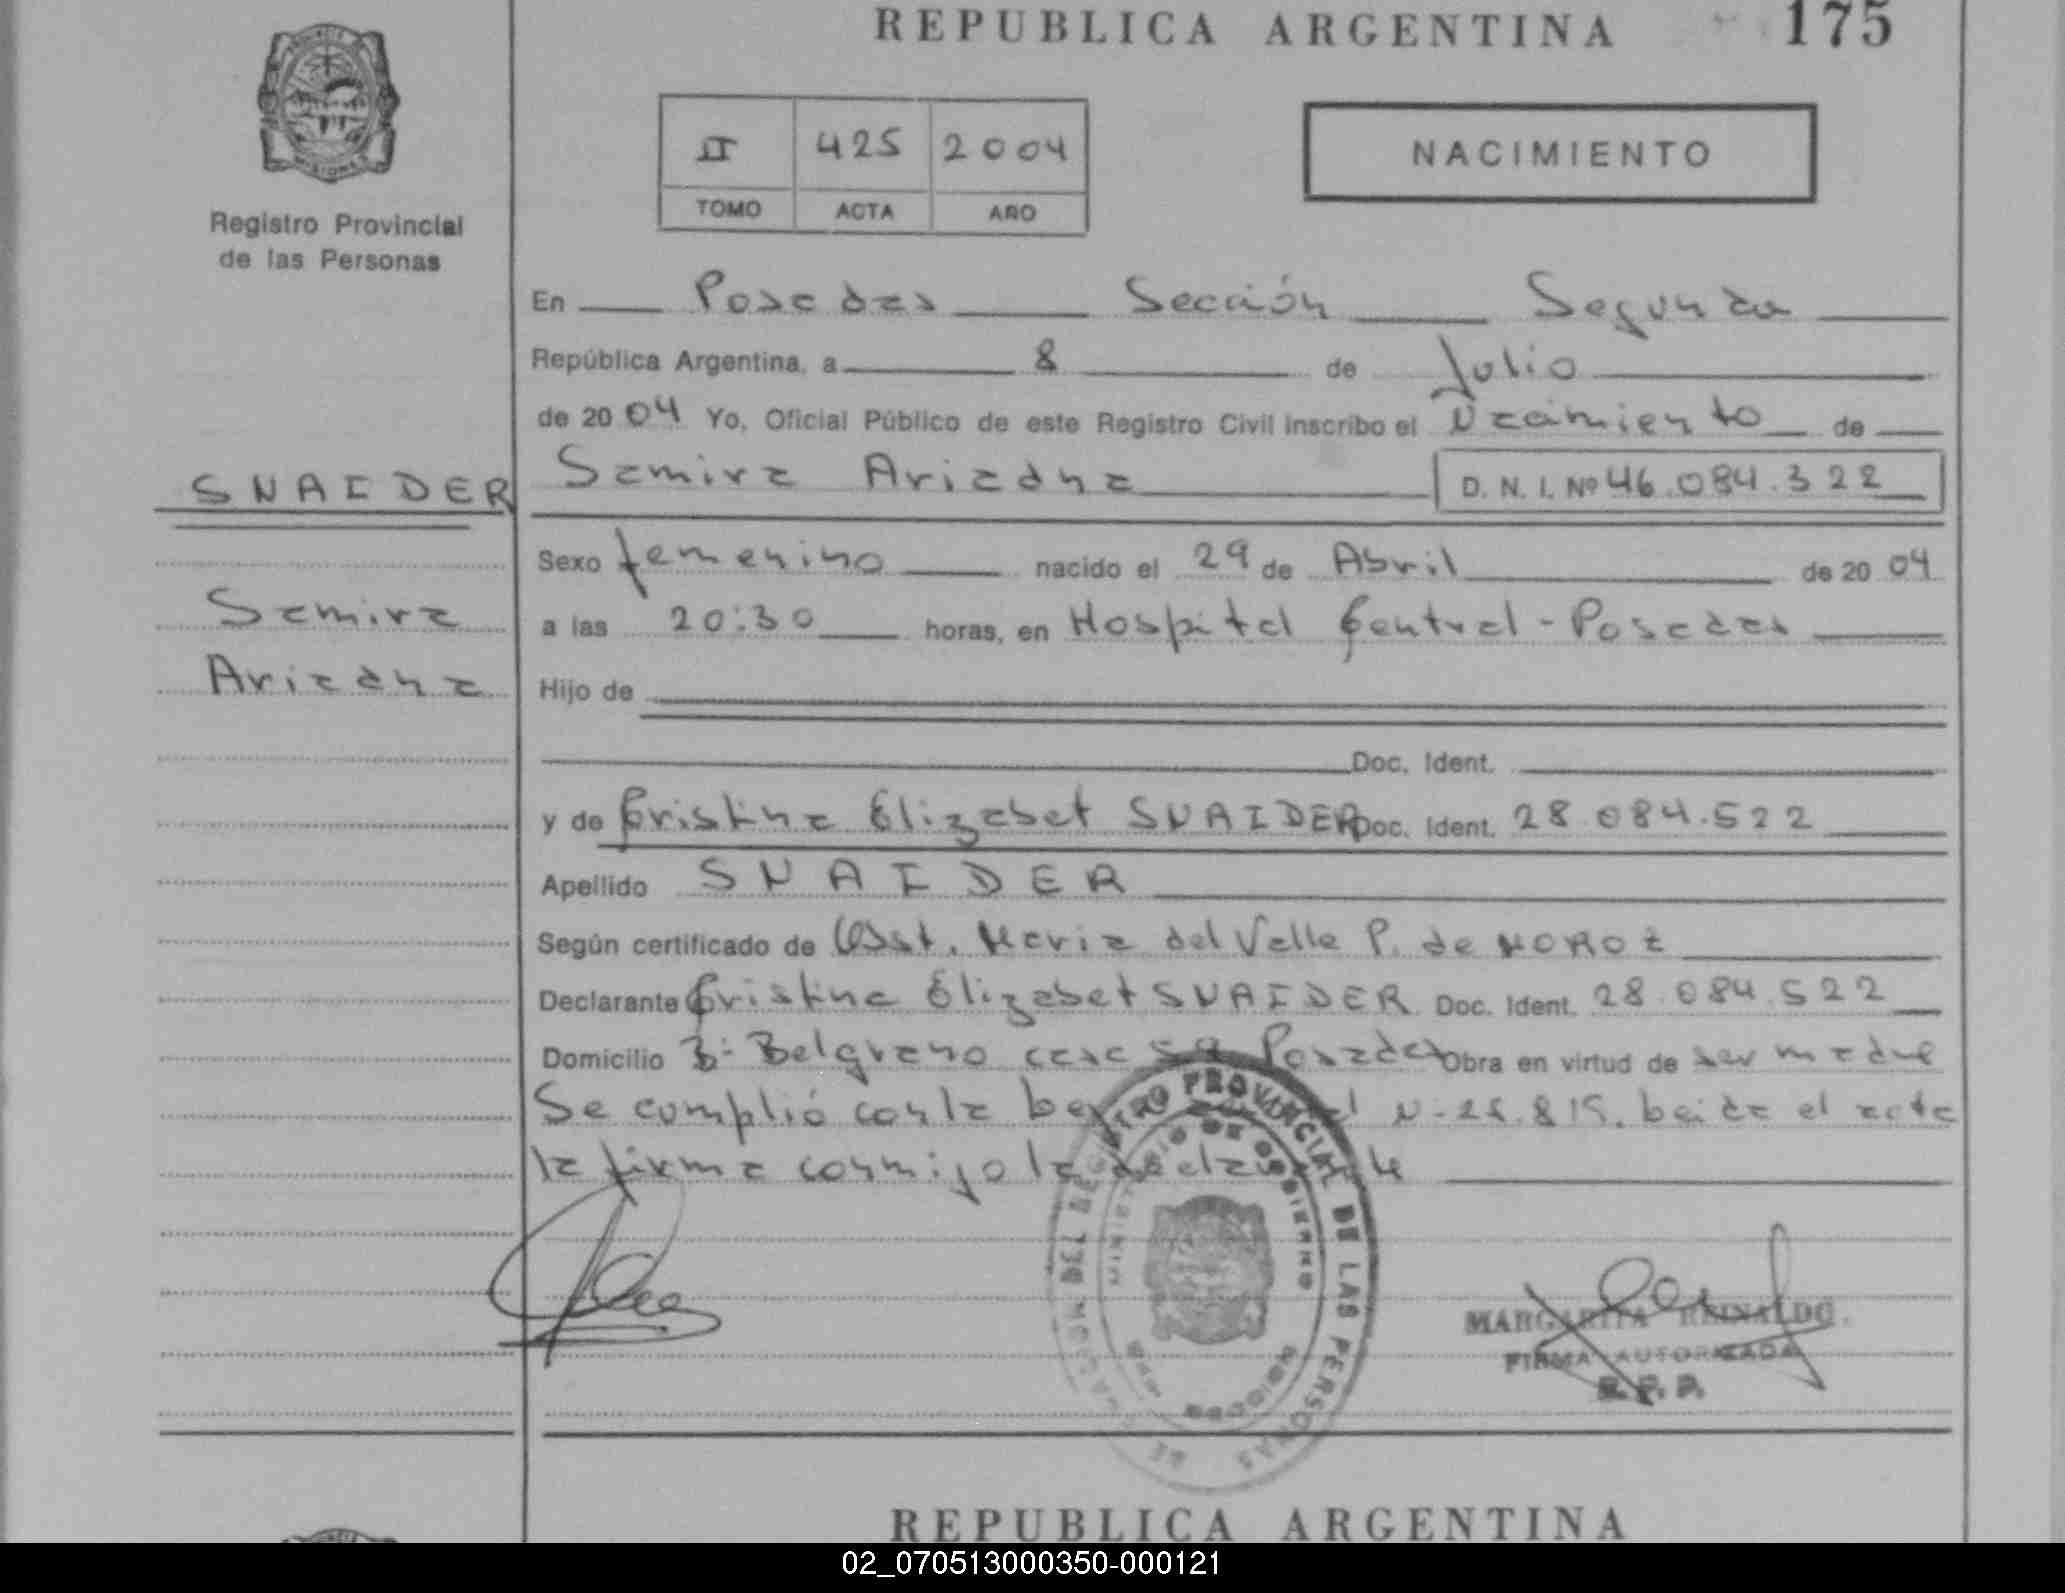 REPUBLICA ARGENTINA 175
II 425 2004
TOMO ACTA AÑO
NACIMIENTO
Registro Provincial
de las Personas
En Posadas Sección Segunda
República Argentina, a 8 de Julio
de 2004 Yo, Oficial Público de este Registro Civil inscribo el Nacimiento de
SNAIDER
Samira Ariadna D. N. I. Nº 46.084.322
Sexo femenino nacido el 29 de Abril de 2004
Samira
a las 20:30 horas, en Hospital Central - Posadas
Ariadna
Hijo de
Doc. Ident.
y de Cristina Elizabet SNAIDER Doc. Ident. 28.084.522
Apellido SNAIDER
Según certificado de Obst. Maria del Valle P. de
Declarante Cristina Elizabet SNAIDER Doc. Ident. 28.084.522
Domicilio Bº Belgrano casa Posadas Obra en virtud de ser madre
Se cumplió con la Leida el acta
la firma conmigo la declarante
REGISTRO PROVINCIAL DE LAS PERSONAS
MINISTERIO DE GOBIERNO
MARGARITA REINALDO
FIRMA AUTORIZADA
R. P. P.
REPUBLICA ARGENTINA
02_070513000350-000121